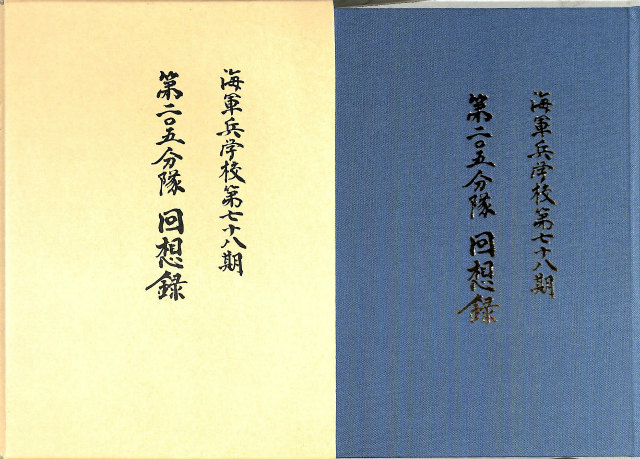 海軍兵学校第七十八期
第二〇五分隊 回想録
海軍兵学校第七十八期
第二〇五分隊 回想録